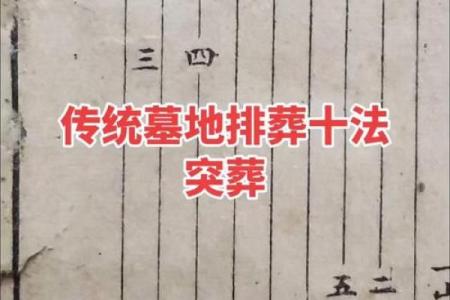 三 四
传统墓地排葬十法
突葬
五 二